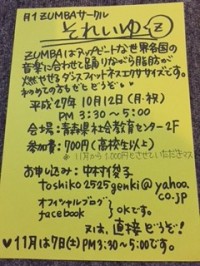 月1 ZUMBAサークル
それいゆ-Z
ZUMBAはアップビートな世界各国の
音楽に合わせて踊りながら脂肪が
燃やせるダンスフィットネスエクササイズです。
初めての方もどーぞどーぞ♡
平成27年10月12日(月・祝)
PM 3:30 〜 5:00
会場:青森県社会教育センター2F
参加費:700円(高校生以上)
※11月から1,000円とさせていただきマス
お申し込み:中村
toshiko2525genki@yahoo.
co.jp
オフィシャルブログ
facebook
OKです。
又は、直接どうぞ!
♥11月は7日(土)PM3:30〜5:00です。